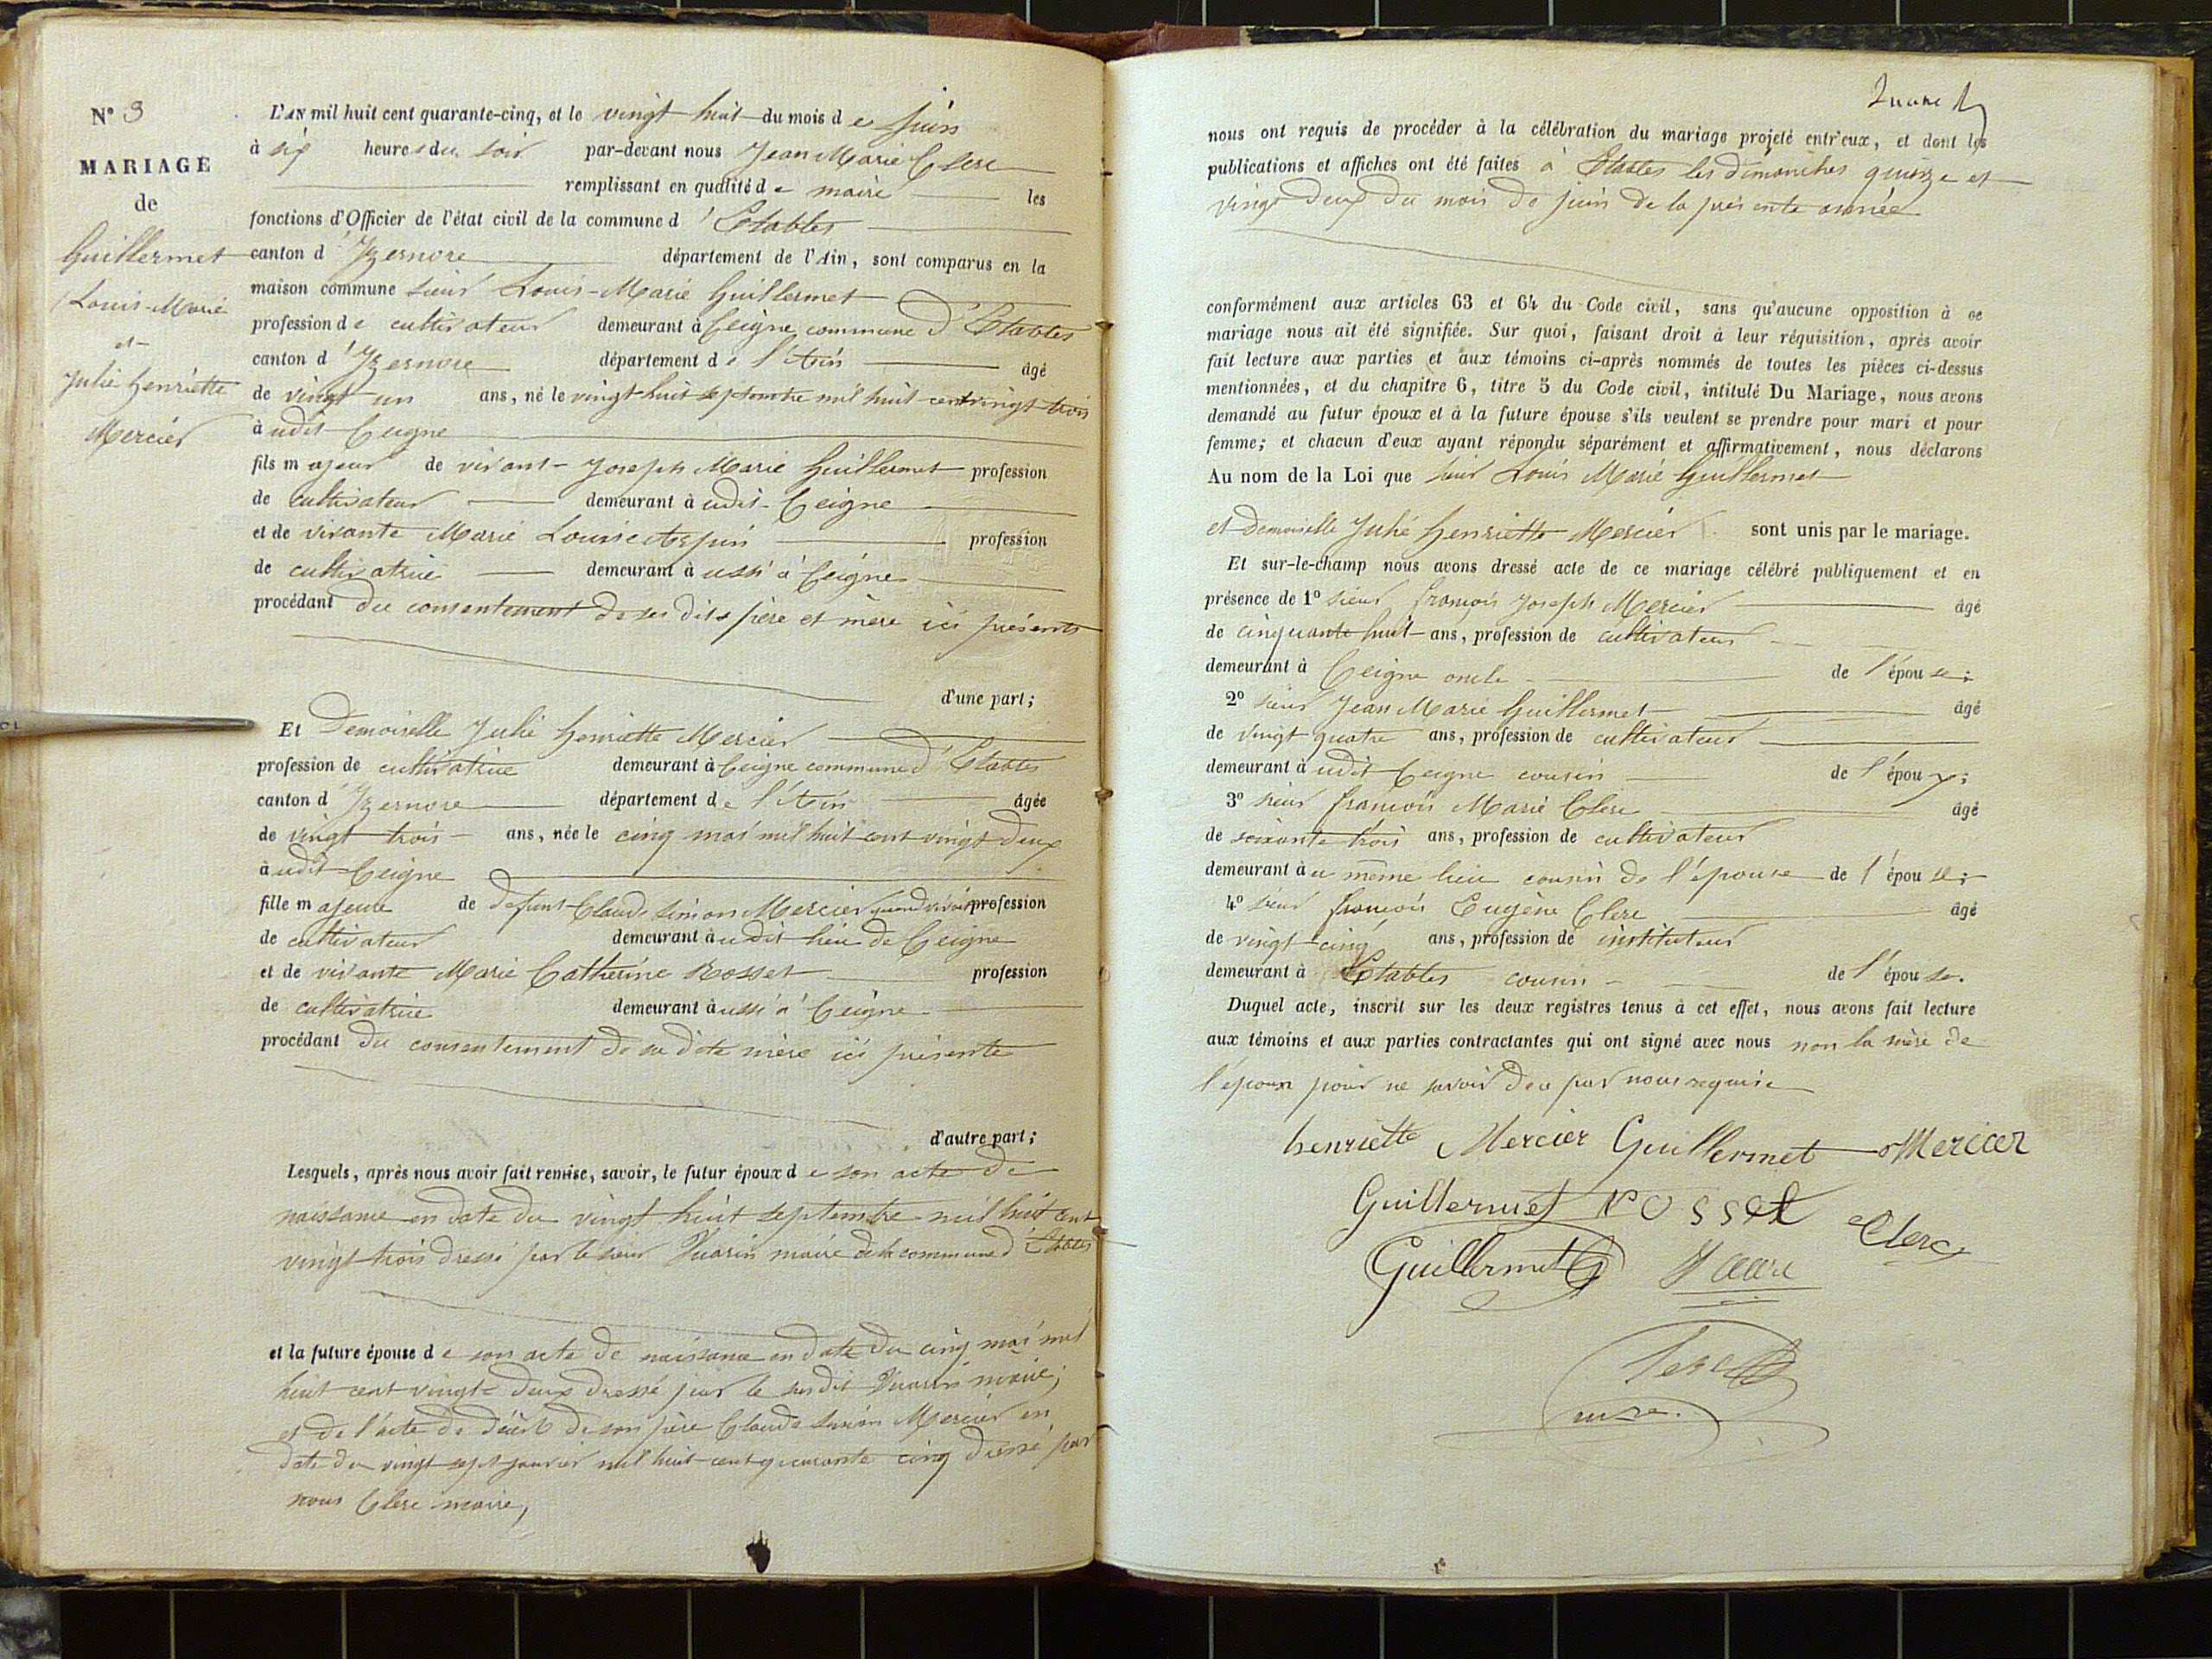 N° 3
MARIAGE
de
Guillermet
Louis-Marie
et
Julie henriette
Mercier
L'AN mil huit cent quarante-cinq, et le vingt huit du mois de juin
à six heures du soir par-devant nous Jean Marie Clerc
remplissant en qualité de maire les
fonctions d'Officier de l'état civil de la commune d'Etables
canton d'Izernore département de l'Ain, sont comparus en la
maison commune sieur Louis-Marie Guillermet
profession de cultivateur demeurant à Ceigne commune d'Etables
canton d'Izernore département de l'Ain âgé
de vingt un ans, né le vingt-huit septembre mil huit cent vingt trois
à udit Ceigne
fils majeur de vivant Joseph Marie Guillermet profession
de cultivateur demeurant à udit Ceigne
et de vivante Marie Louise profession
de cultivatrice demeurant à ussi à Ceigne
procédant du consentement de ses dits père et mère ici présents
d'une part;
Et Demoiselle Julie henriette Mercier
profession de cultivatrice demeurant à Ceigne commune d'Etables
canton d'Izernore département de l'Ain âgée
de vingt trois ans, née le cinq mai mil huit cent vingt deux
à udit Ceigne
fille majeure de defunt Claude Simon Mercier quand vivait profession
de cultivateur demeurant à udit lieu de Ceigne
et de vivante Marie Catherine Rosset profession
de cultivatrice demeurant à ussi à Ceigne
procédant du consentement de sa dite mère ici présente
d'autre part;
Lesquels, après nous avoir fait remise, savoir, le futur époux de son acte de
naissance en date du vingt huit septembre mil huit cent
vingt trois dressé par le sieur Vuarin maire de la commune d'Etables
et la future épouse de son acte de naissance en date du cinq mai mil
huit cent vingt deux dressé par le susdit Vuarin maire;
et de l'acte de décès de son père Claude Simon Mercier en
date du vingt sept janvier mil huit cent quarante cinq dressé par
nous Clerc maire,
nous ont requis de procéder à la célébration du mariage projeté entr'eux, et dont les
publications et affiches ont été faites à Etables les dimanches quinze et
vingt deux du mois de juin de la présente année.
conformément aux articles 63 et 64 du Code civil, sans qu'aucune opposition à ce
mariage nous ait été signifiée. Sur quoi, faisant droit à leur réquisition, après avoir
fait lecture aux parties et aux témoins ci-après nommés de toutes les pièces ci-dessus
mentionnées, et du chapitre 6, titre 5 du Code civil, intitulé Du Mariage, nous avons
demandé au futur époux et à la future épouse s'ils veulent se prendre pour mari et pour
femme; et chacun d'eux ayant répondu séparément et affirmativement, nous déclarons
Au nom de la Loi que sieur Louis Marie Guillermet
et Demoiselle Julie henriette Mercier sont unis par le mariage.
Et sur-le-champ nous avons dressé acte de ce mariage célébré publiquement et en
présence de 1° sieur françois Joseph Mercier âgé
de cinquante huit ans, profession de cultivateur
demeurant à Ceigne oncle de l'épouse;
2° sieur Jean Marie Guillermet âgé
de vingt quatre ans, profession de cultivateur
demeurant à udit Ceigne cousin de l'époux;
3° sieur françois Marie Clerc âgé
de soixante trois ans, profession de cultivateur
demeurant à u même lieu cousin de l'épouse de l'épouse;
4° sieur françois Eugène Clerc âgé
de vingt cinq ans, profession de instituteur
demeurant à Etables cousin de l'épouse.
Duquel acte, inscrit sur les deux registres tenus à cet effet, nous avons fait lecture
aux témoins et aux parties contractantes qui ont signé avec nous non la mère de
l'époux pour ne savoir de ce par nous requise
henriette Mercier Guillermet Mercier
Guillermet rosset Clerc
Guillermet